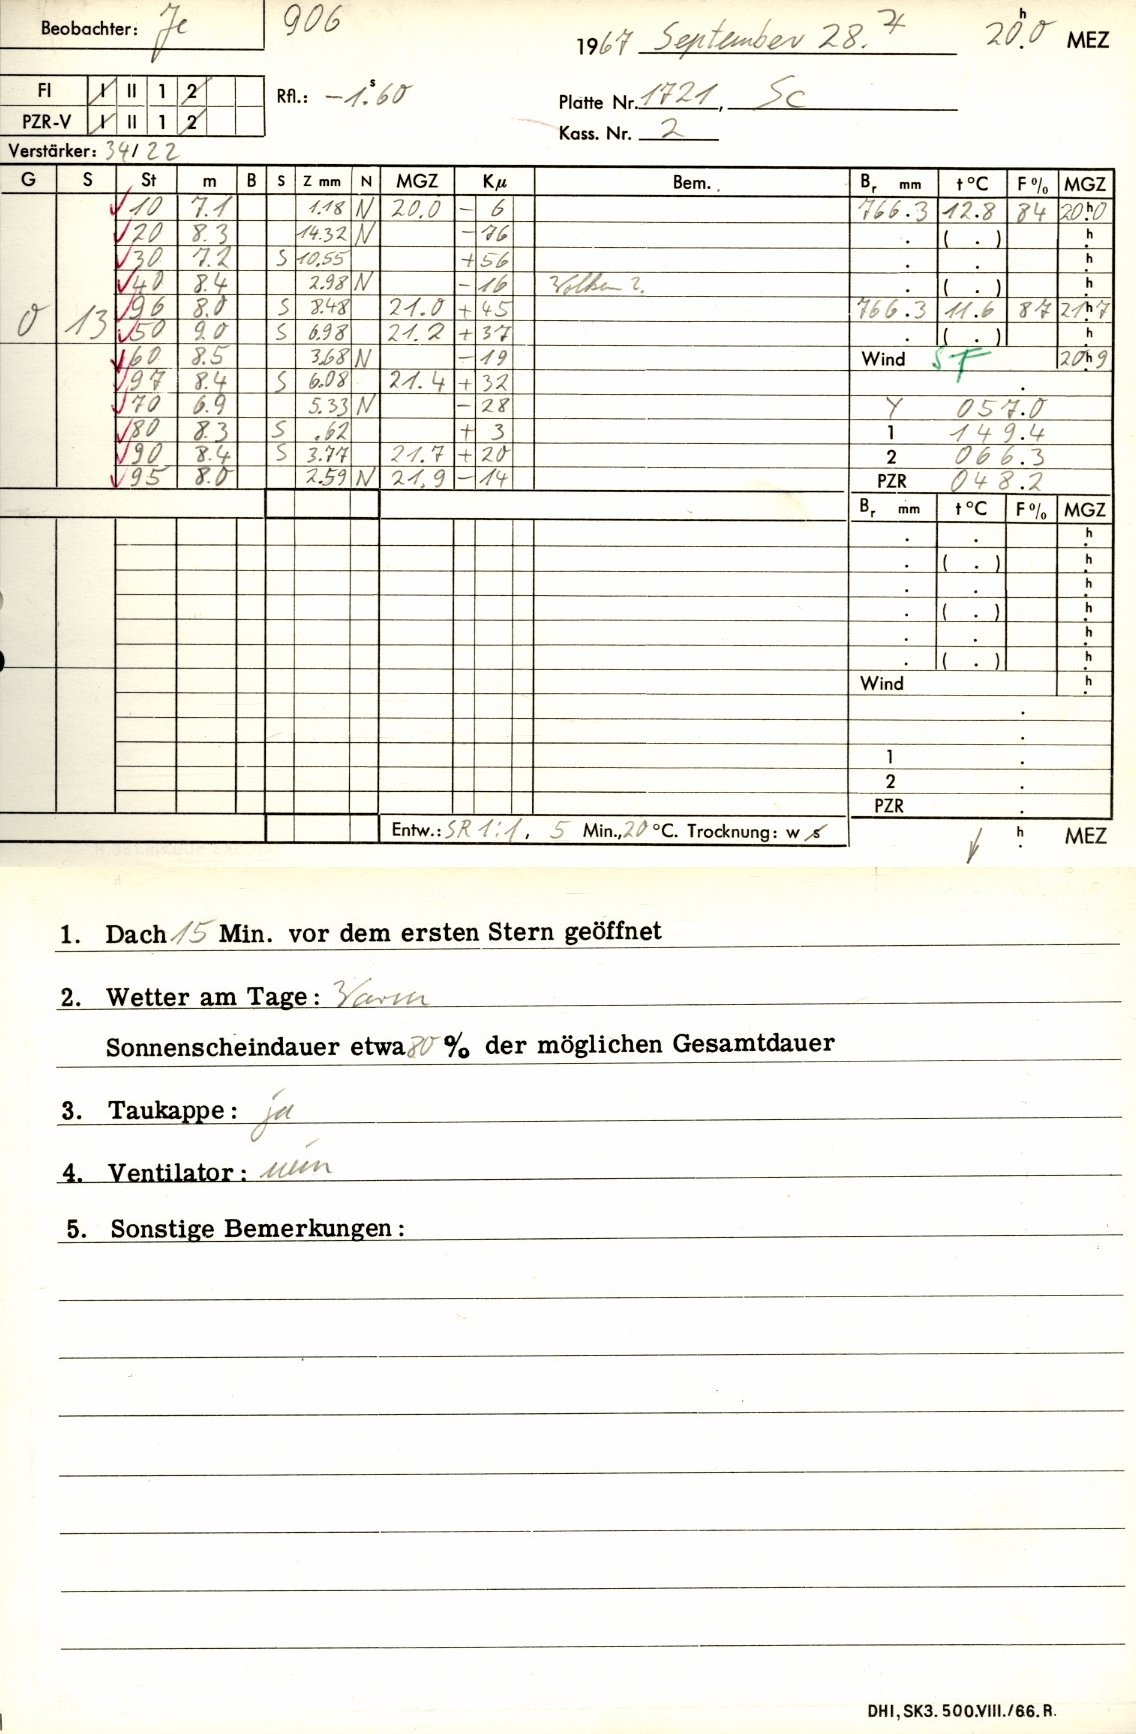 Beobachter: Je 906
1967 September 28. 4 20.ʰ0 MEZ
FI I II 1 2 Rfl.: −1.ˢ60 Platte Nr. 1721, Sc
PZR-V I II 1 2 Kass. Nr. 2
Verstärker: 34/22
G S St m B S Z mm N MGZ Kμ Bem. Br mm t °C F % MGZ
10 7.1 1.18 N 20.0 − 6 766.3 12.8 84 20.ʰ0
20 8.3 14.32 N − 76 . ( . ) .ʰ
30 7.2 S 10.55 + 56 . . .ʰ
40 8.4 2.98 N − 16 Wolken ?. . ( . ) .ʰ
96 8.0 S 8.48 21.0 + 45 766.3 11.6 87 21.ʰ7
0 13 50 9.0 S 6.98 21.2 + 37 . ( . ) .ʰ
60 8.5 3.68 N − 19 Wind SF 20.ʰ9
97 8.4 S 6.08 21.4 + 32 .
70 6.9 5.33 N − 28 Y 057.0
80 8.3 S .62 + 3 1 149.4
90 8.4 S 3.77 21.7 + 20 2 066.3
95 8.0 2.59 N 21.9 − 14 PZR 048.2
Br mm t °C F % MGZ
. . .ʰ
. ( . ) .ʰ
. . .ʰ
. ( . ) .ʰ
. . .ʰ
. ( . ) .ʰ
Wind .ʰ
.
.
1 .
2 .
PZR .
Entw.: SR 1:1, 5 Min., 20 °C. Trocknung: w s .ʰ MEZ
1. Dach 15 Min. vor dem ersten Stern geöffnet
2. Wetter am Tage: Warm
Sonnenscheindauer etwa 80 % der möglichen Gesamtdauer
3. Taukappe: ja
4. Ventilator: nein
5. Sonstige Bemerkungen:
DHI, SK3. 500.VIII./66. R.